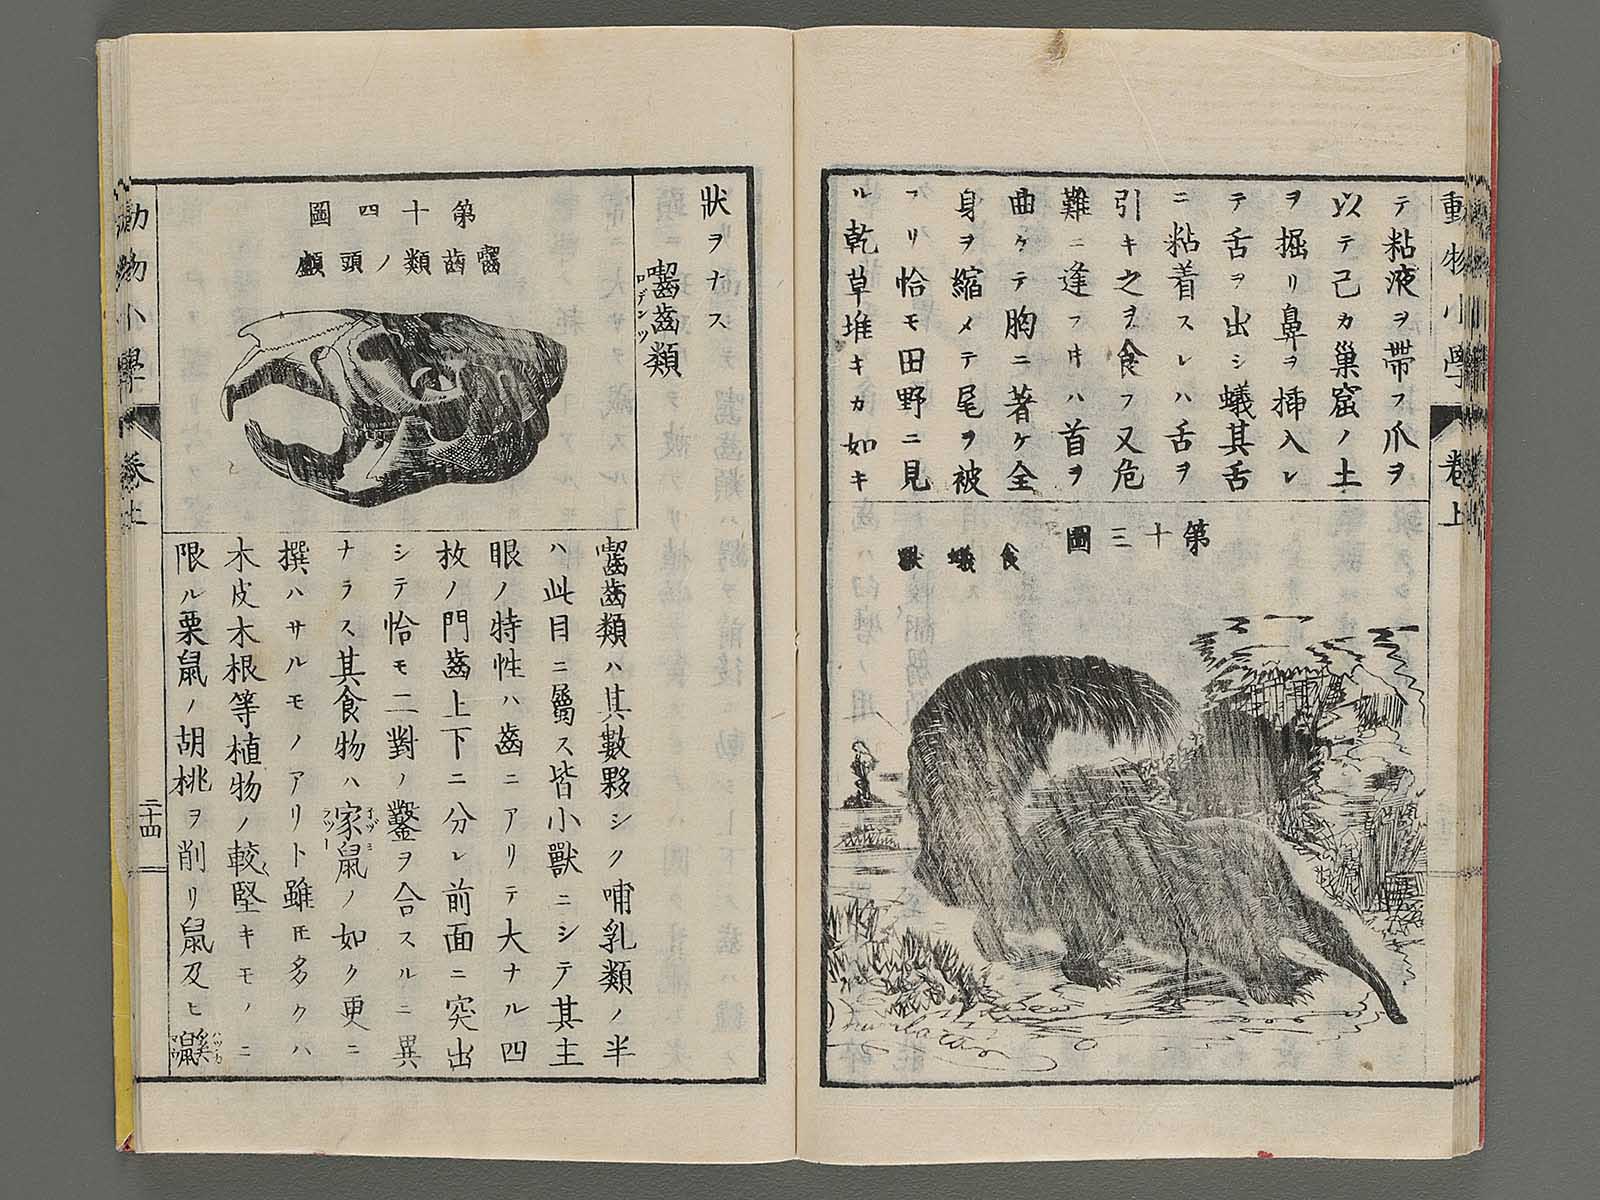 動物小學 卷上
テ粘液ヲ帶フ爪ヲ
以テ己カ巢窟ノ土
ヲ掘リ鼻ヲ揷入レ
テ舌ヲ出シ蟻其舌
ニ粘着スレハ舌ヲ
引キ之ヲ食フ又危
難ニ逢フ𪜈ハ首ヲ
曲ケテ胸ニ著ケ全
身ヲ縮メテ尾ヲ被
フリ恰モ田野ニ見
ル乾草堆キカ如キ
第十三圖
食蟻獸
狀ヲナス
囓齒類
ロデンツ
第十四圖
囓齒類ノ頭顱
囓齒類ハ其數夥シク哺乳類ノ半
ハ此目ニ屬ス皆小獸ニシテ其主
眼ノ特性ハ齒ニアリテ大ナル四
枚ノ門齒上下ニ分レ前面ニ突出
シテ恰モ二對ノ鑿ヲ合スルニ異
ナラス其食物ハ家鼠ノ如ク更ニ
撰ハサルモノアリト雖𪜈多クハ
木皮木根等植物ノ較堅キモノニ
限ル栗鼠ノ胡桃ヲ削リ鼠及ヒ
動物小學 卷上
二十四